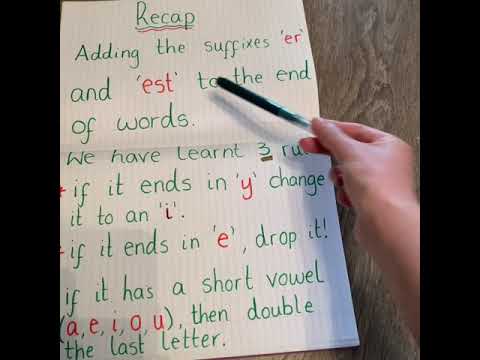 Recap
Adding the suffixes 'er'
and 'est' to the end
of words.
We have learnt 3
if it ends in 'y' change
it to an 'i'.
if it ends in 'e', drop it!
if it has a short vowel
(a, e, i, o, u), then double
the last letter.